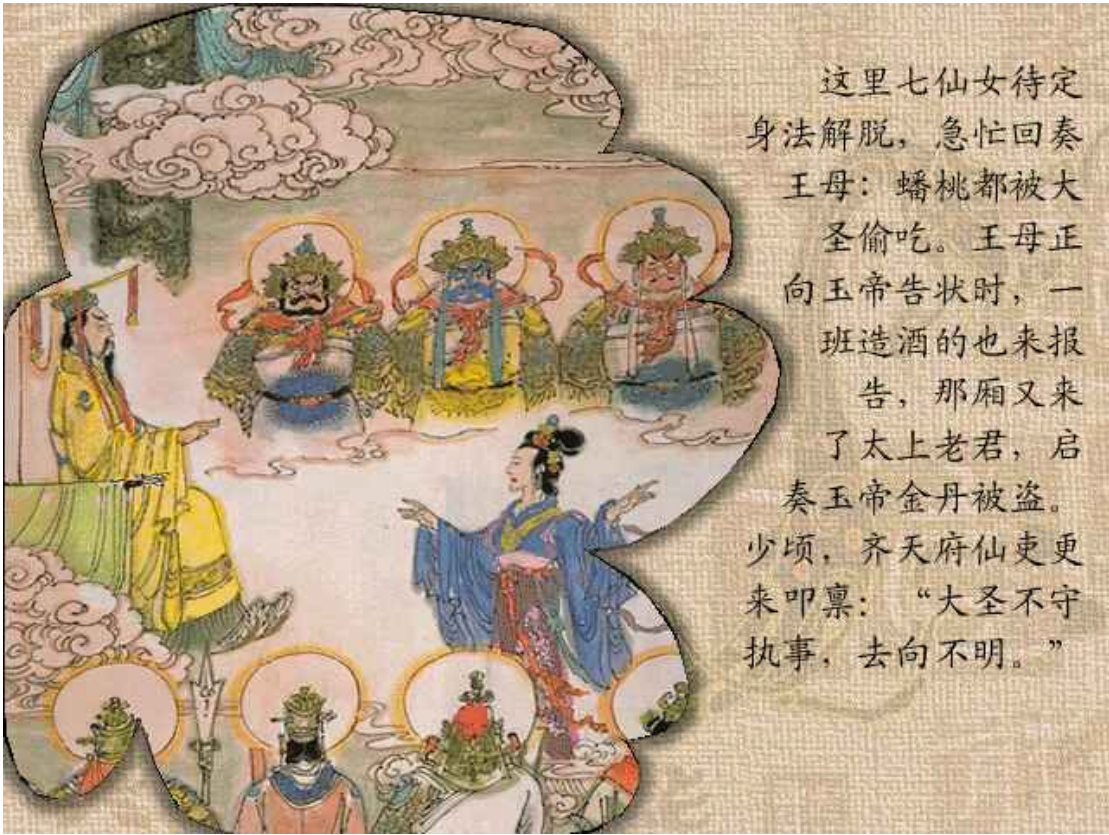 这里七仙女待定
身法解脱，急忙回奏
王母：蟠桃都被大
圣偷吃。王母正
向玉帝告状时，一
班造酒的也来报
告，那厢又来
了太上老君，启
奏玉帝金丹被盗。
少顷，齐天府仙吏更
来叩禀：“大圣不守
执事，去向不明。”